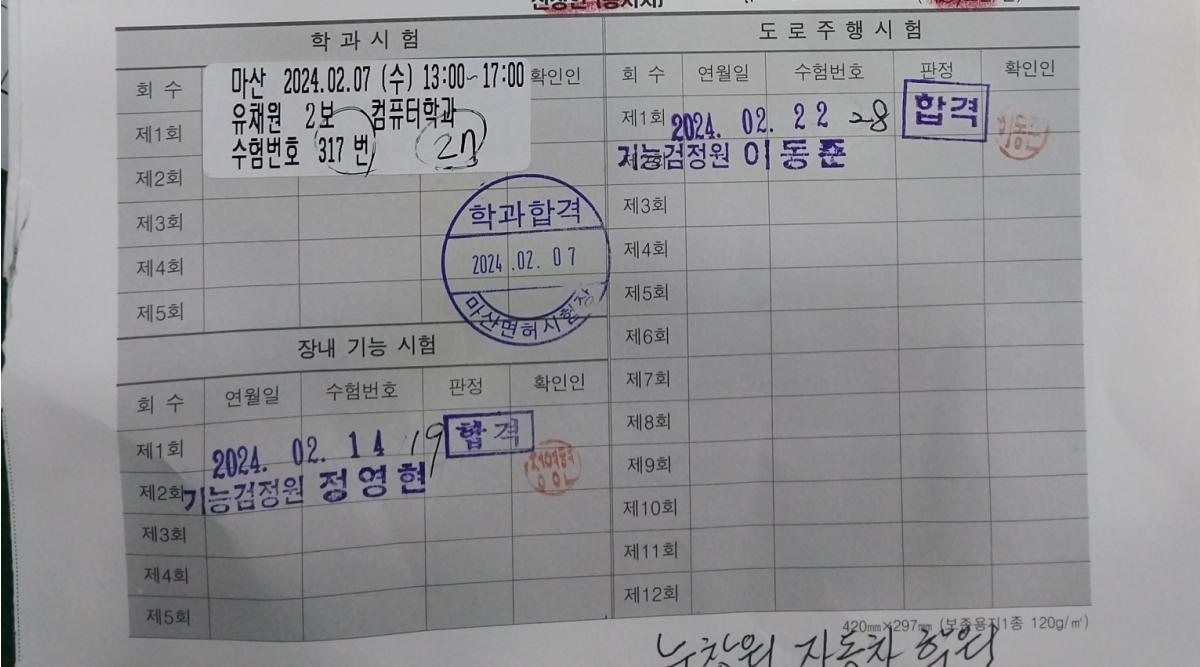 학과시험
회 수
확인인
마산 2024.02.07 (수) 13:00~17:00
유채원 2보 컴퓨터학과
수험번호 317 번
제1회
제2회
제3회
제4회
제5회
학과합격
2024.02.07
마산면허시험장
장내 기능 시험
회 수 연월일 수험번호 판정 확인인
제1회 2024. 02. 14 19 합격
제2회 기능검정원 정영현
제3회
제4회
제5회
도로주행시험
회 수 연월일 수험번호 판정 확인인
제1회 2024. 02. 22 28 합격
기능검정원 이동준
제3회
제4회
제5회
제6회
제7회
제8회
제9회
제10회
제11회
제12회
420㎜×297㎜ (보존용지1종 120g/㎡)
자동차 학원